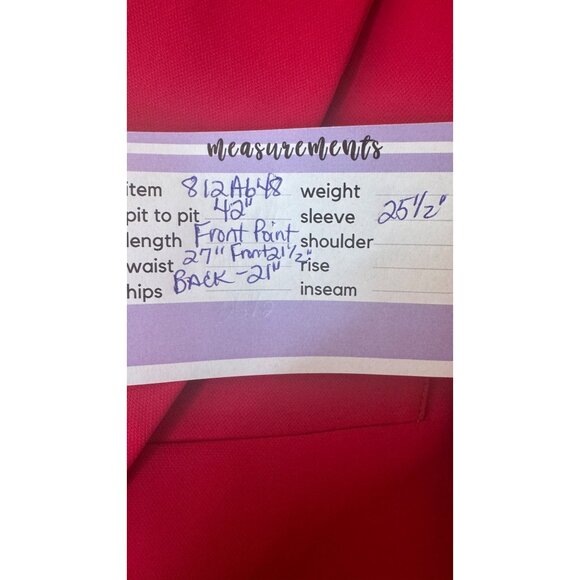 measurements
item 812A648 weight
pit to pit 42" sleeve 25 1/2"
length Front Point shoulder
waist 27" Front 21 1/2" rise
hips BACK - 21" inseam